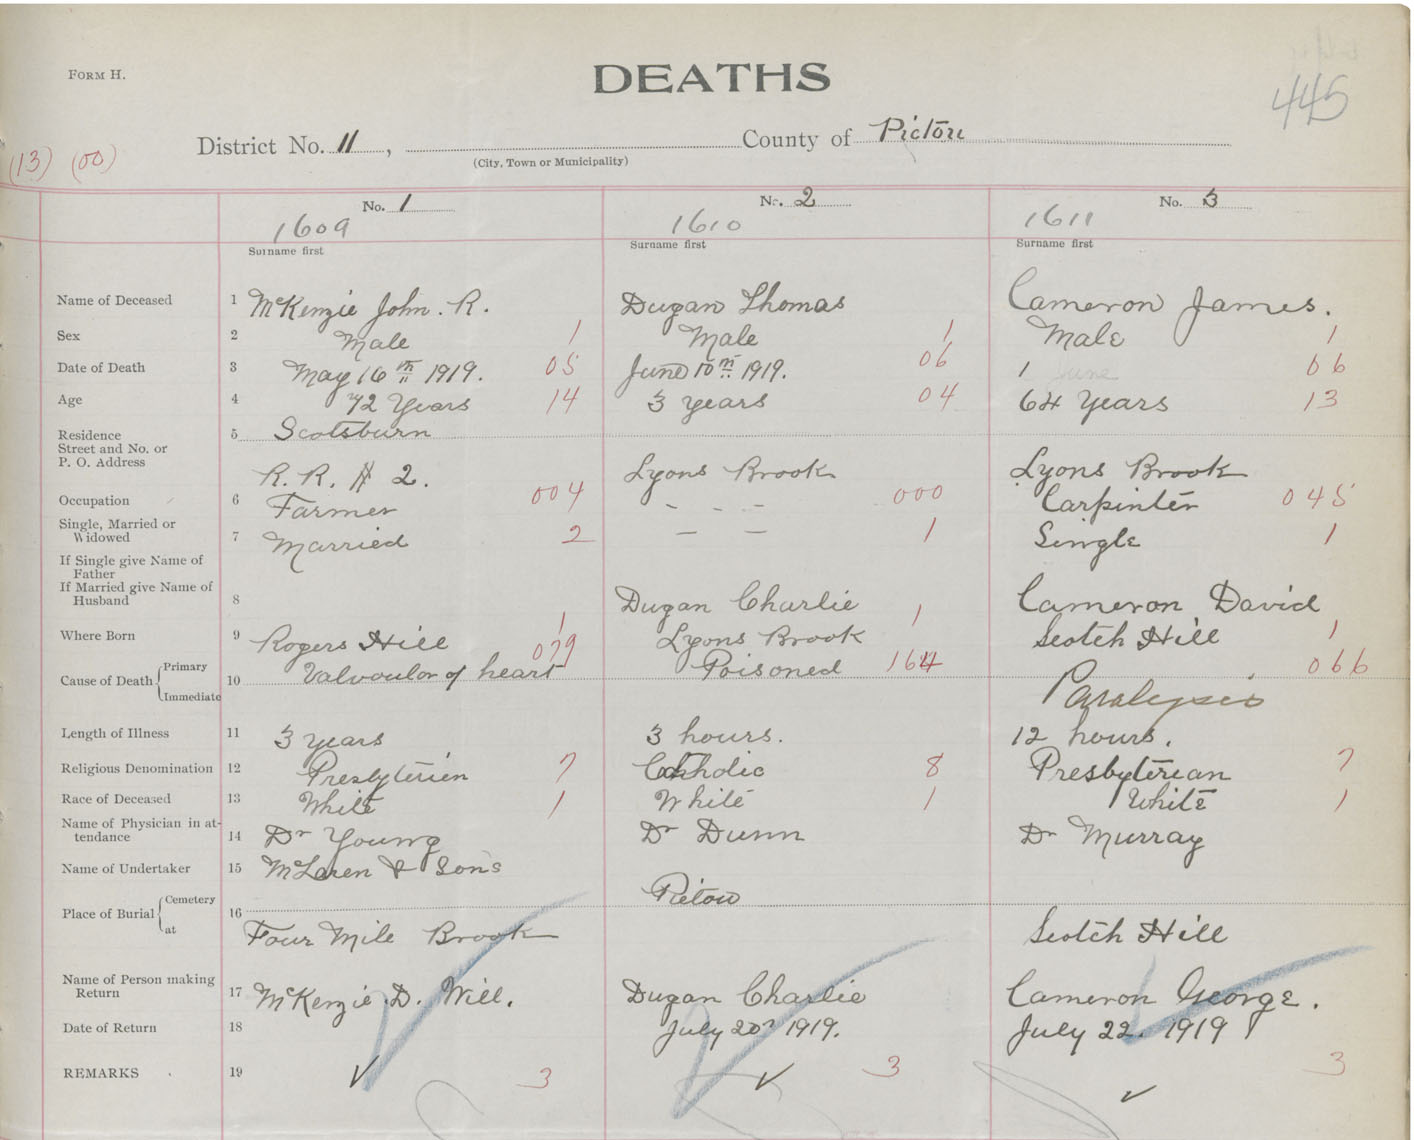 FORM H.
DEATHS
445
District No. 11, County of Pictou
(City, Town or Municipality)
(13) (00)
No. 1 No. 2 No. 3
1609 1610 1611
Surname first Surname first Surname first
Name of Deceased 1 McKenzie John. R. Dugan Thomas Cameron James.
Sex 2 Male 1 Male 1 Male 1
Date of Death 3 May 16th 1919. 05 June 10th 1919. 06 1 June 06
Age 4 72 Years 14 3 years 04 64 Years 13
Residence 5 Scotsburn
Street and No. or
P. O. Address R. R. # 2. Lyons Brook Lyons Brook
Occupation 6 Farmer 004 - - - - 000 Carpinter 045
Single, Married or
Widowed 7 Married 2 — — 1 Single 1
If Single give Name of
Father
If Married give Name of
Husband 8 Dugan Charlie Cameron David
Where Born 9 Rogers Hill 1 Lyons Brook 1 Scotch Hill 1
Cause of Death Primary Immediate 10 Valvoular of heart 079 Poisoned 164 Paralysis 066
Length of Illness 11 3 years 3 hours. 12 hours.
Religious Denomination 12 Presbyterien 7 Catholic 8 Presbyterian 7
Race of Deceased 13 White 1 White 1 White 1
Name of Physician in at-
tendance 14 Dr Young Dr Dunn Dr Murray
Name of Undertaker 15 McLaren & Sons
Place of Burial Cemetery at 16 Four Mile Brook Pictou Scotch Hill
Name of Person making
Return 17 McKenzie. D. Will. Dugan Charlie Cameron George.
Date of Return 18 July 20 1919. July 22. 1919
REMARKS 19 ✓ 3 ✓ 3 ✓ 3